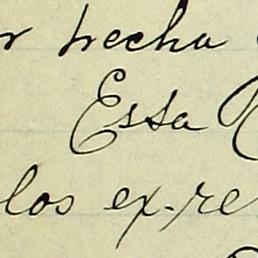 r hecha
Essa
los ex-re